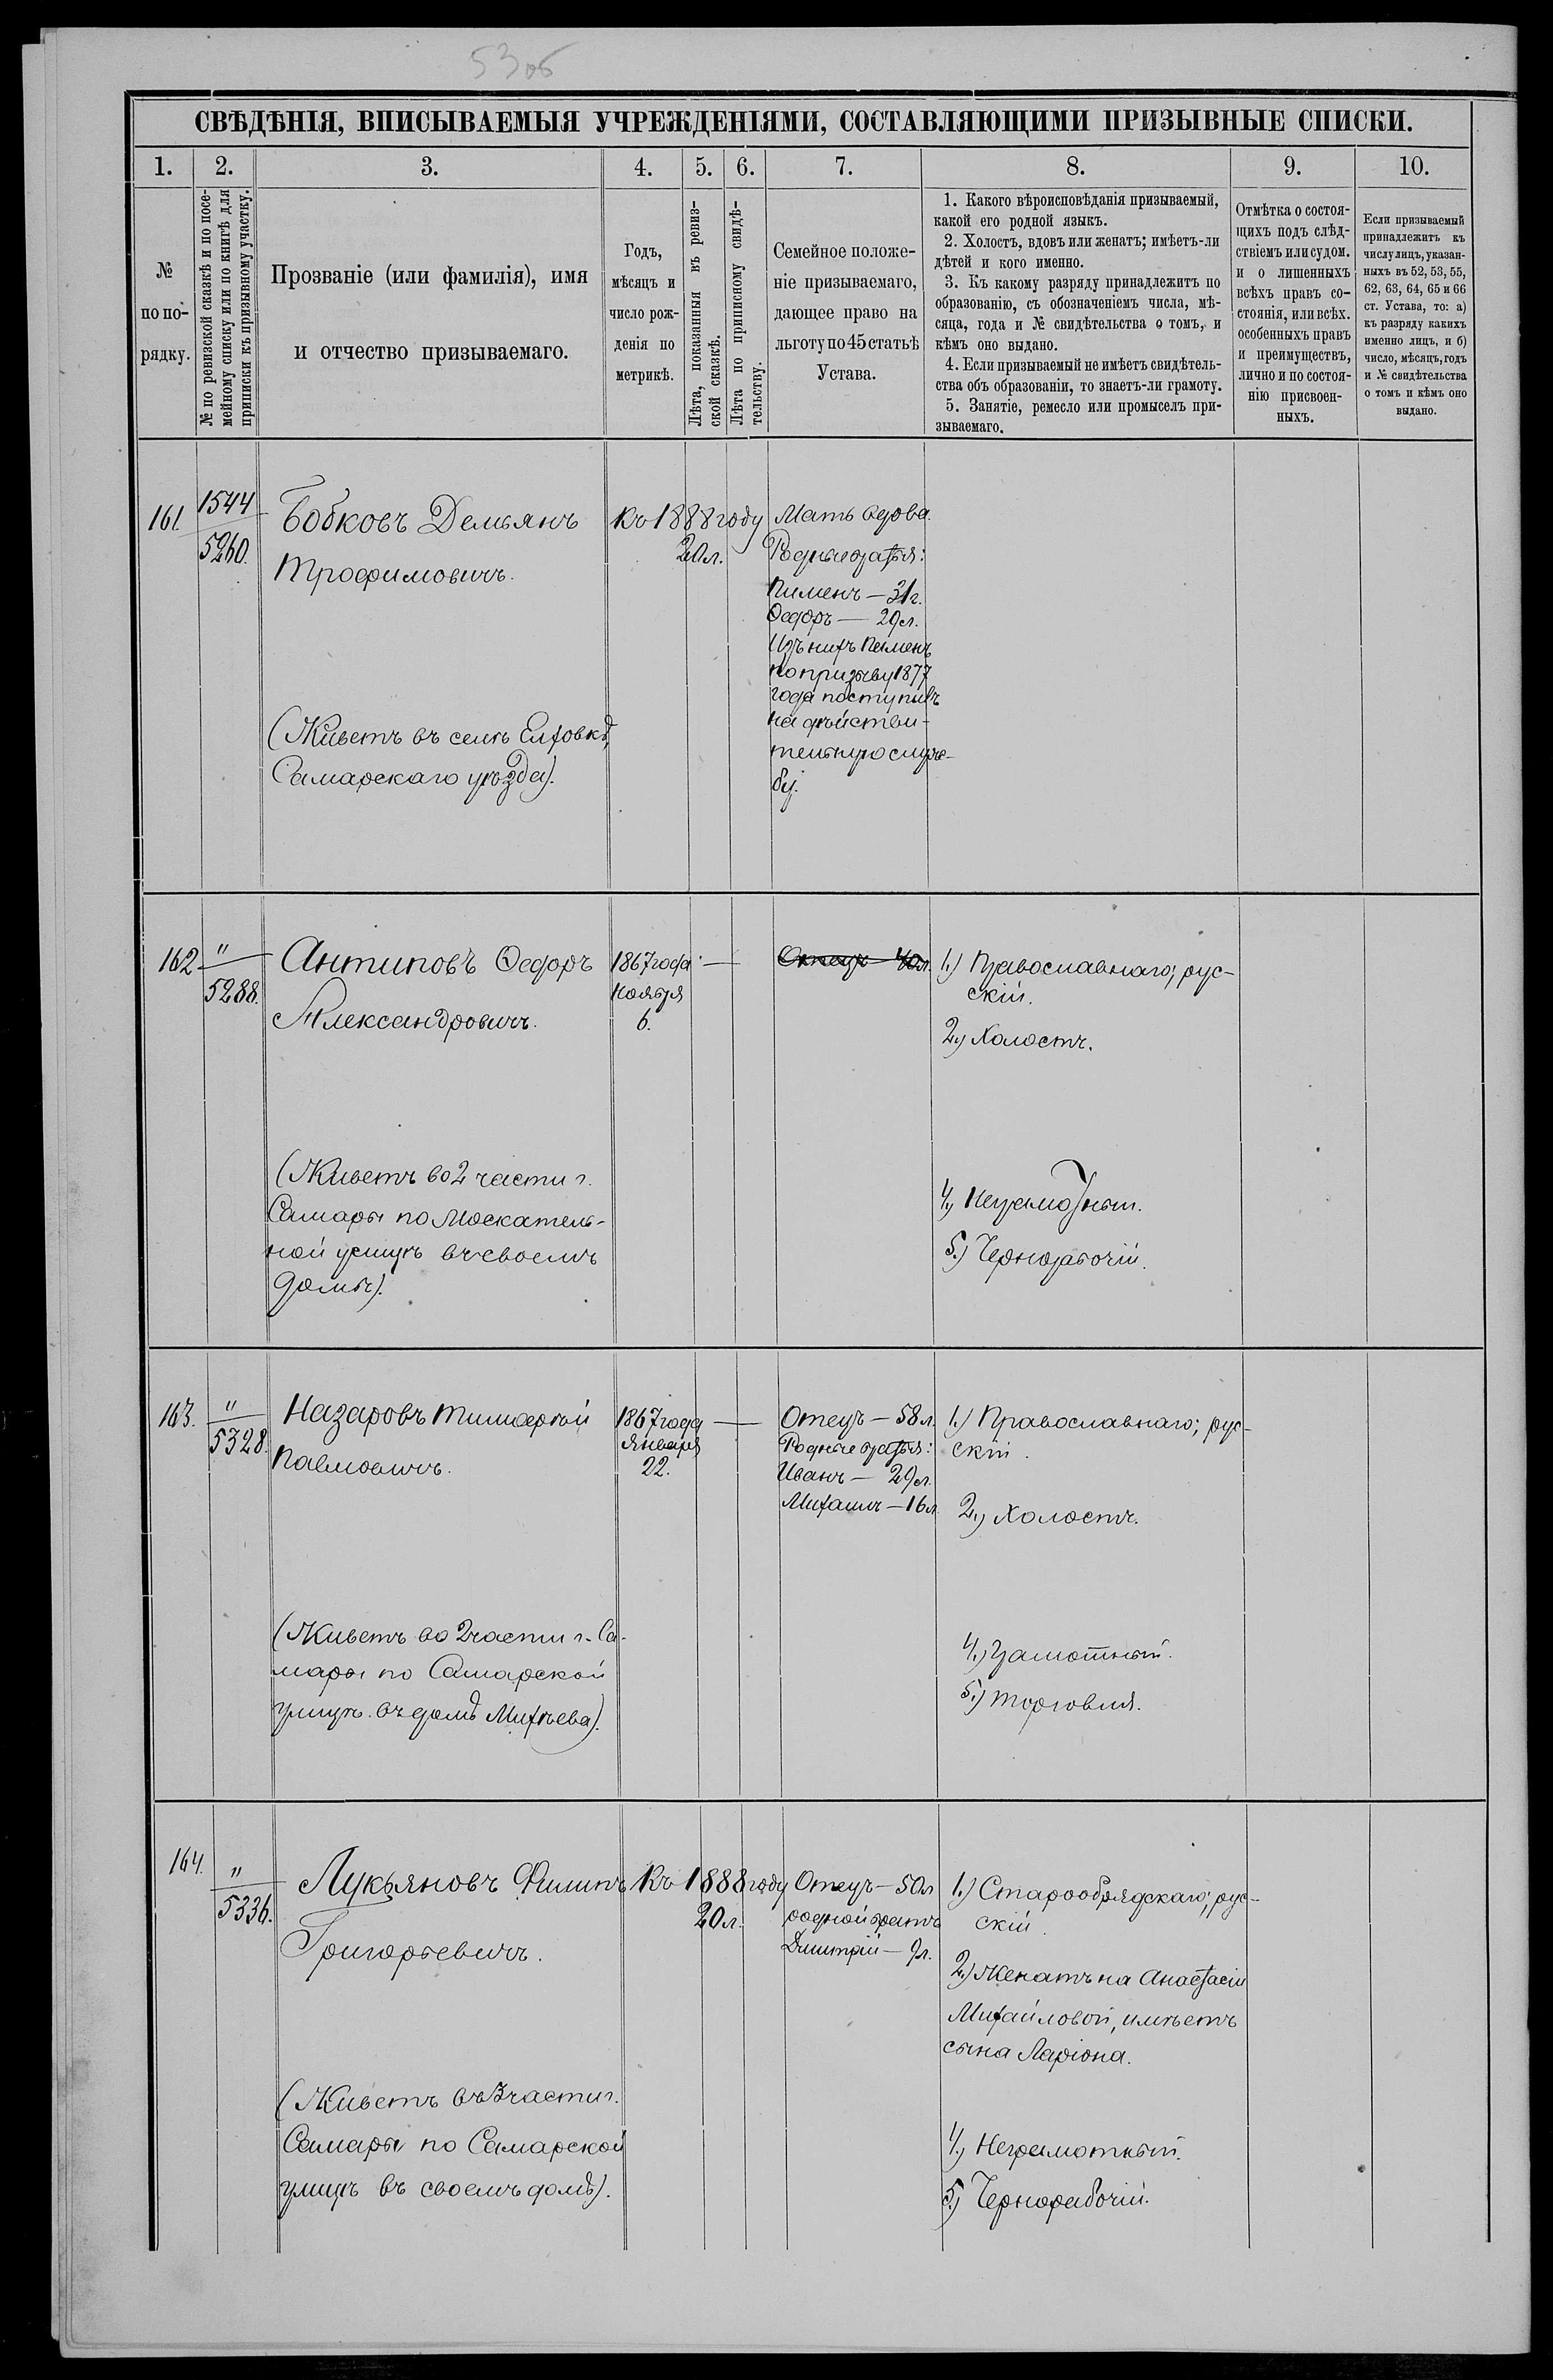 53 об
СВѢДѢНІЯ, ВПИСЫВАЕМЫЯ УЧРЕЖДЕНІЯМИ, СОСТАВЛЯЮЩИМИ ПРИЗЫВНЫЕ СПИСКИ.
1. 2. 3. 4. 5. 6. 7. 8. 9. 10.
№
по по-
рядку.
№ по ревизской сказкѣ и по посе-
мейному списку или по книгѣ для
приписки къ призывному участку.
Прозваніе (или фамилія), имя
и отчество призываемаго.
Годъ,
мѣсяцъ и
число рож-
денія по
метрикѣ.
Лѣта, показанныя въ ревиз-
ской сказкѣ.
Лѣта по приписному свидѣ-
тельству.
Семейное положе-
ніе призываемаго,
дающее право на
льготу по 45 статьѣ
Устава.
1. Какого вѣроисповѣданія призываемый,
какой его родной языкъ.
2. Холостъ, вдовъ или женатъ; имѣетъ-ли
дѣтей и кого именно.
3. Къ какому разряду принадлежитъ по
образованію, съ обозначеніемъ числа, мѣ-
сяца, года и № свидѣтельства о томъ, и
кѣмъ оно выдано.
4. Если призываемый не имѣетъ свидѣтель-
ства объ образованіи, то знаетъ-ли грамоту.
5. Занятіе, ремесло или промыселъ при-
зываемаго.
Отмѣтка о состоя-
щихъ подъ слѣд-
ствіемъ или судом.
и о лишенныхъ
всѣхъ правъ со-
стоянія, или всѣх.
особенныхъ правъ
и преимуществъ,
лично и по состоя-
нію присвоен-
ныхъ.
Если призываемый
принадлежитъ къ
числу лицъ, указан-
ныхъ въ 52, 53, 55,
62, 63, 64, 65 и 66
ст. Устава, то: а)
къ разряду какихъ
именно лицъ, и б)
число, мѣсяцъ, годъ
и № свидѣтельства
о томъ и кѣмъ оно
выдано.
161.
1544
5260.
Бобковъ Демьянъ
Трофимовичъ.
(Живетъ въ селѣ Елховкѣ,
Самарскаго уѣзда).
Къ 1888 году
20 л.
Мать вдова.
Родные братья:
Пименъ — 31 г.
Ѳедоръ — 29 л.
Изъ нихъ Пименъ
по призыву 1877
года поступилъ
на дѣйстви-
тельную служ-
бу.
162
"
5288.
Антиповъ Ѳедоръ
Александровичъ.
(Живетъ во 2 части г.
Самары по Москатель-
ной улицѣ въ своемъ
домѣ).
1867 года
ноября
6.
Отецъ — 40 л.
1.) Православнаго; рус-
скій.
2.) Холостъ.
4.) Неграмотный.
5.) Чернорабочій.
163.
"
5328.
Назаровъ Тимофей
Павловичъ.
(Живетъ во 2 части г. Са-
мары по Самарской
улицѣ въ домѣ Михѣева).
1867 года
января
22.
Отецъ — 58 л.
Родные братья:
Иванъ — 29 л.
Михаилъ — 16 л.
1.) Православнаго; рус-
скій.
2.) Холостъ.
4.) Грамотный.
5.) Торговля.
164.
"
5336.
Лукьяновъ Филипъ
Григорьевичъ.
(Живетъ въ 3 части г.
Самары по Самарской
улицѣ въ своемъ домѣ).
Къ 1888 году
20 л.
Отецъ — 50 л
родной братъ
Дмитрій — 9 л.
1.) Старообрядскаго; рус-
скій.
2.) Женатъ на Анастасіи
Михайловой, имѣетъ
сына Ларіона.
4.) Неграмотный.
5.) Чернорабочій.